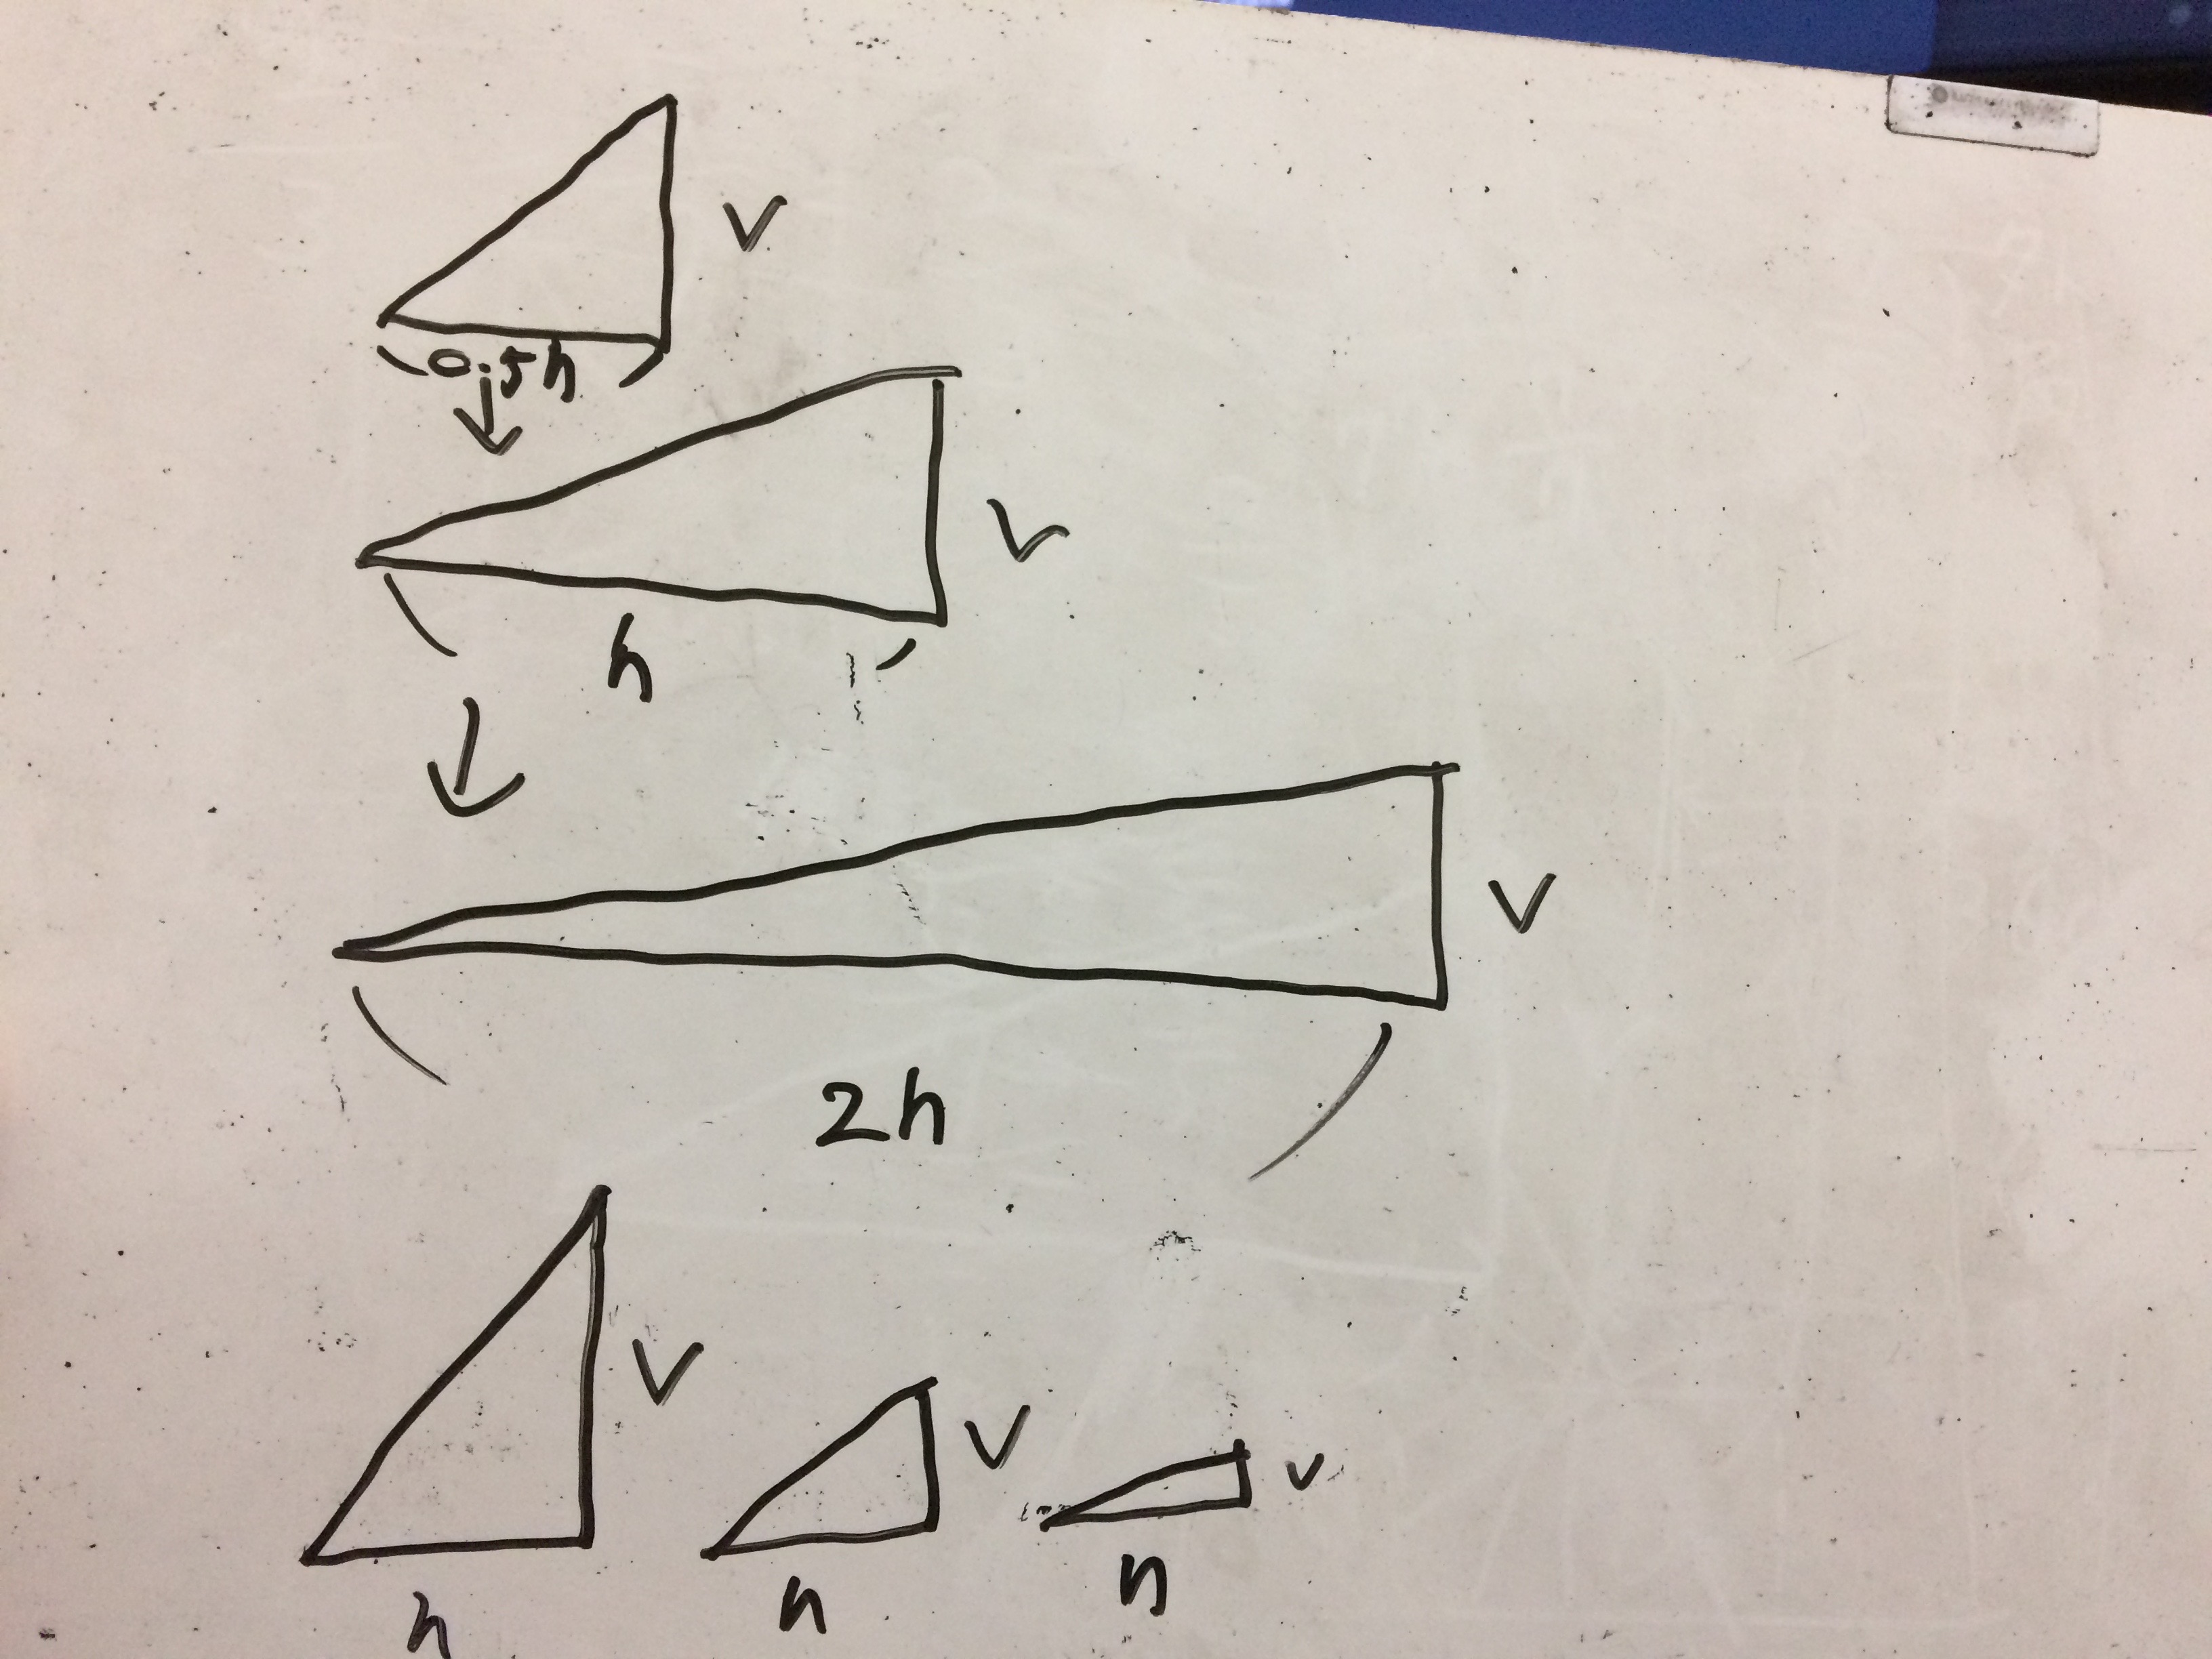 V
0.5h
V
h
V
2h
V
V
V
h
h
h